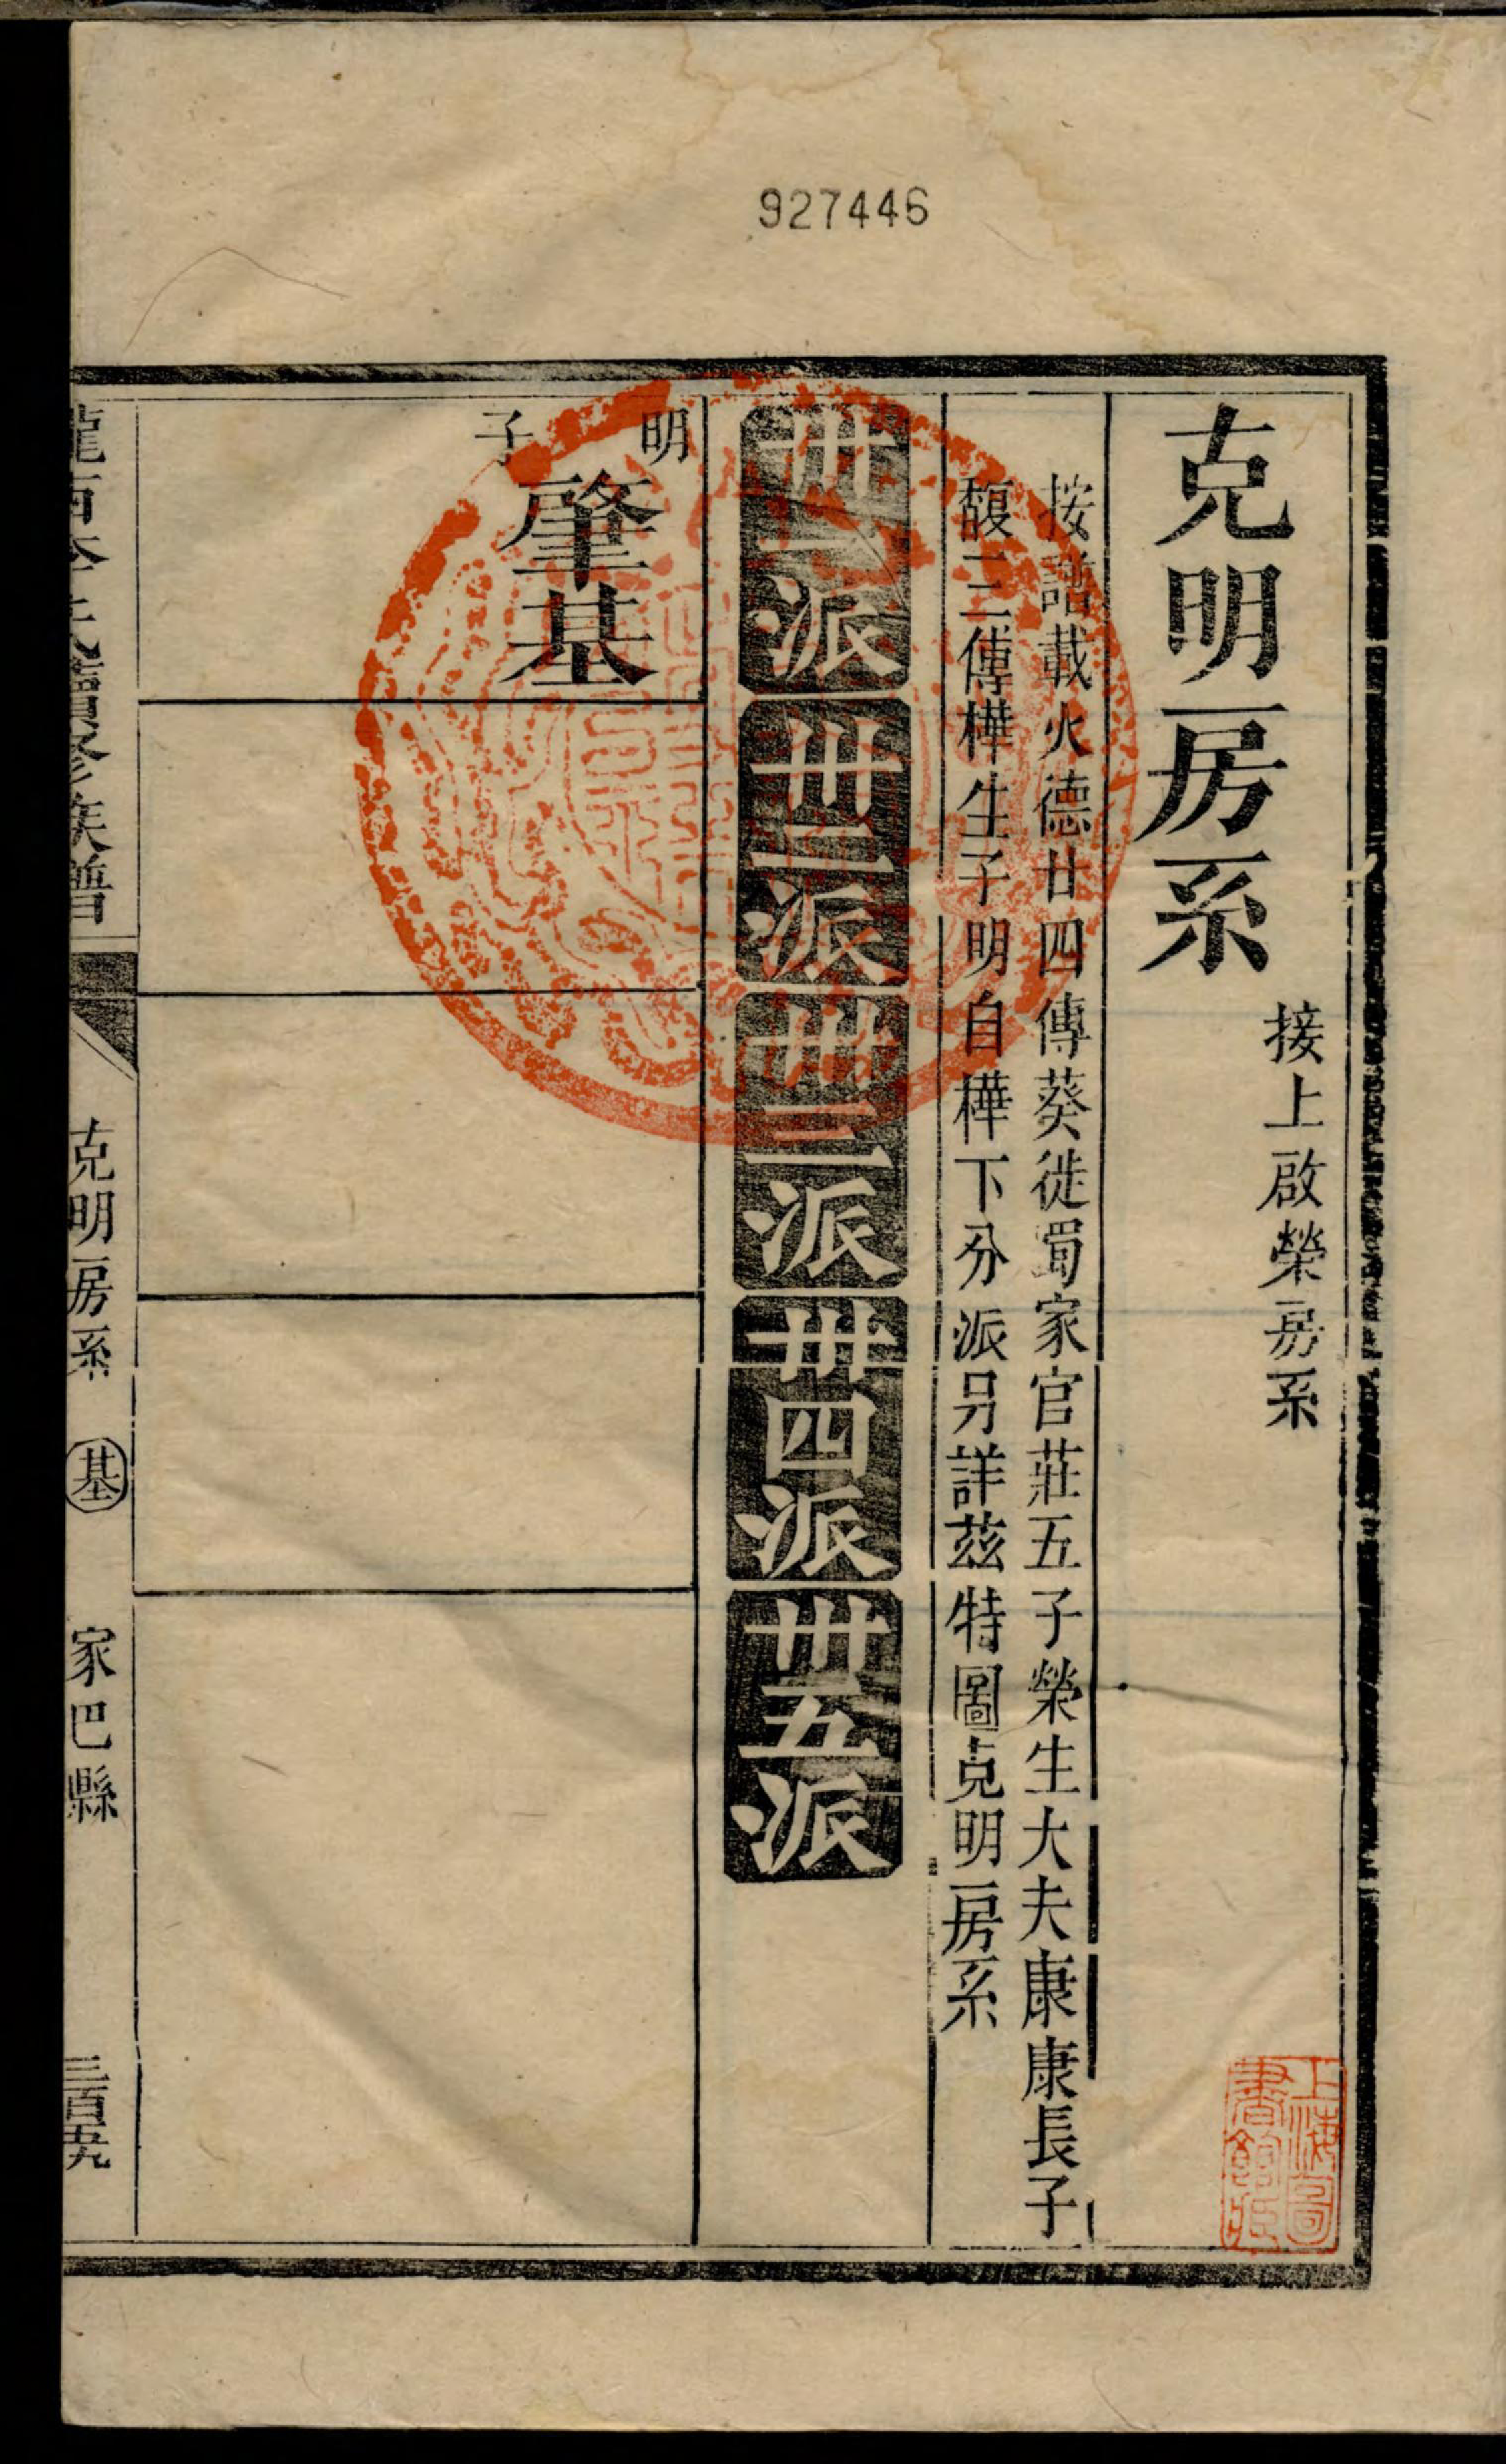 927446
克明房系
接上啟榮房系
按譜載火德廿四傳葵徙蜀家官莊五子榮生大夫康康長子
馥三傳樺生子明自樺下分派另詳茲特圖克明房系
卌一派
卌二派
卌三派
卌四派
卌五派
明
肇基
子
隴西李氏續修族譜
克明房系
基
家巴縣
三百五九
上海圖
書館藏